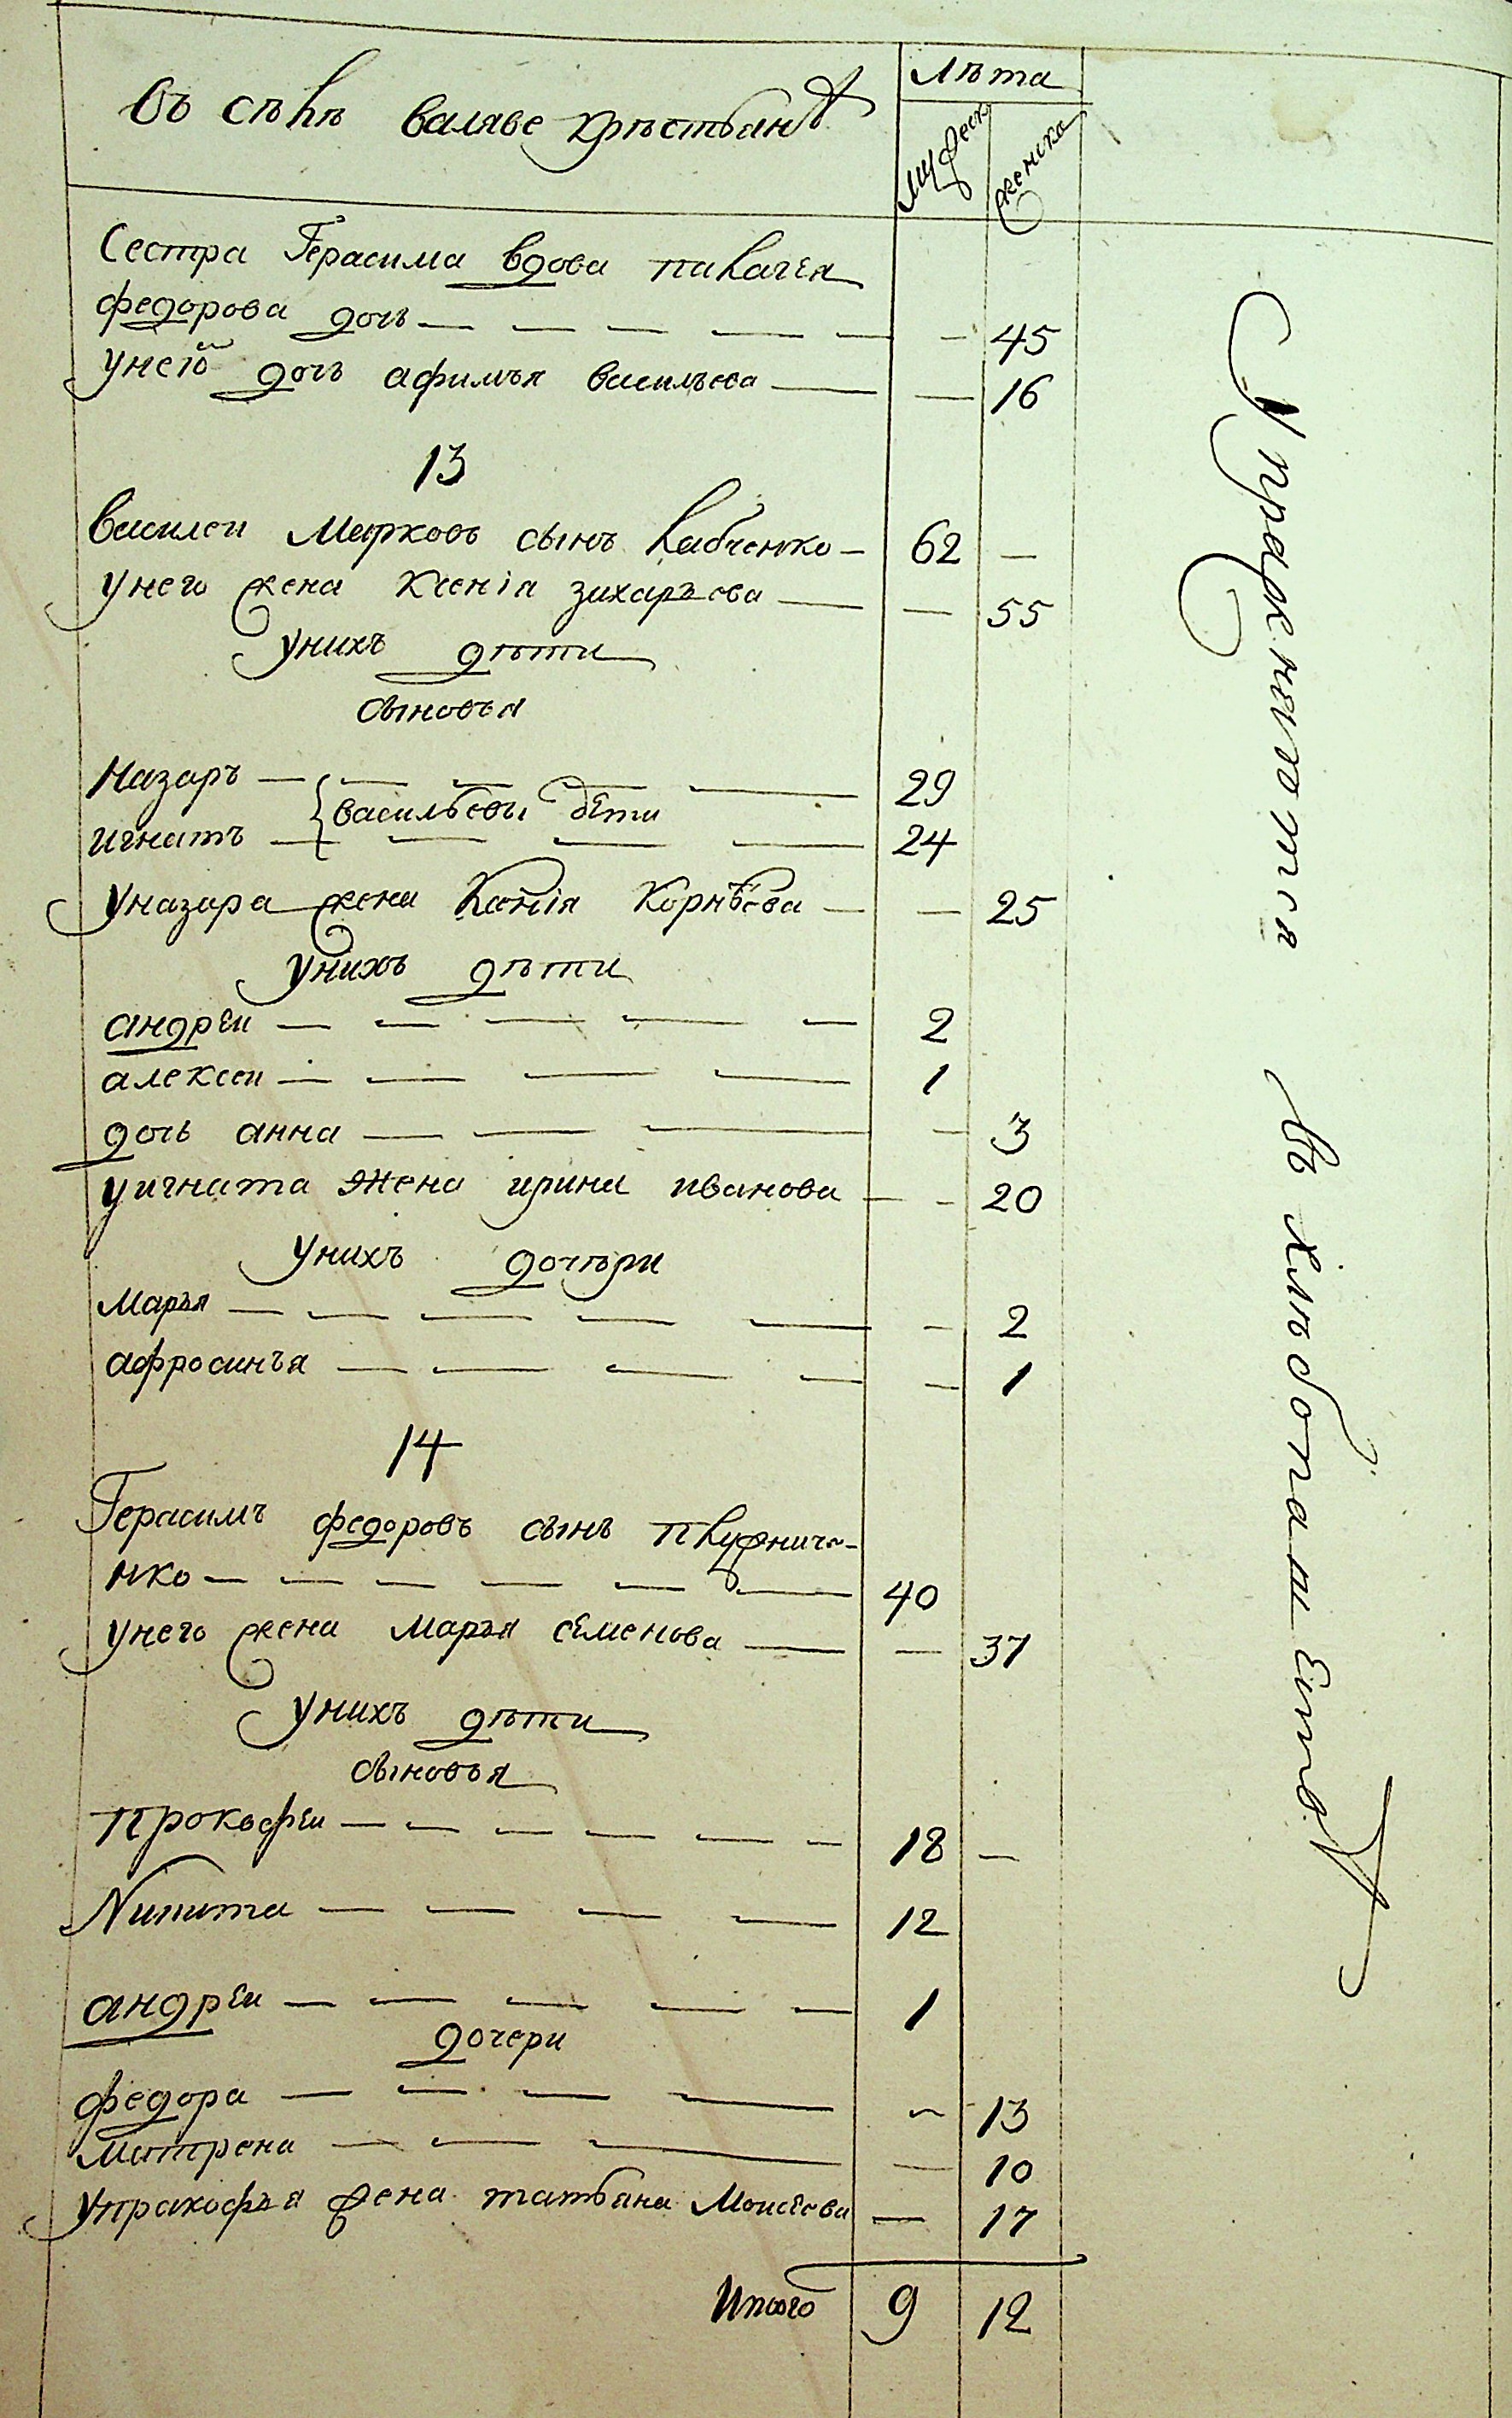 Въ селе валяве крестьянъ
Лѣта
мужеск
женска
Сестра Герасима вдова палагея
федорова дочь 45
унеіо дочь афимья васильева 16
13
василеи Марковъ сынъ бабченко 62
унего жена Ксенія захарьева 55
унихъ дѣти
сыновья
Назаръ 29
васильевы дѣти
игнатъ 24
уназара жена Ксенія Корнѣева 25
унихъ дѣти
андреи 2
алексеи 1
дочь анна 3
уигната жена ирина иванова 20
унихъ дочери
Марья 2
афросинья 1
14
Герасимъ федоровъ сынъ
нко 40
унего жена Марья семенова 37
унихъ дѣти
сыновья
Прокофеи 18
Никита 12
андреи 1
дочери
федора 13
Матрена 10
упракофья жена татьяна Моисеева 17
Итого 9 12
Упражняются въ хлебопашестве